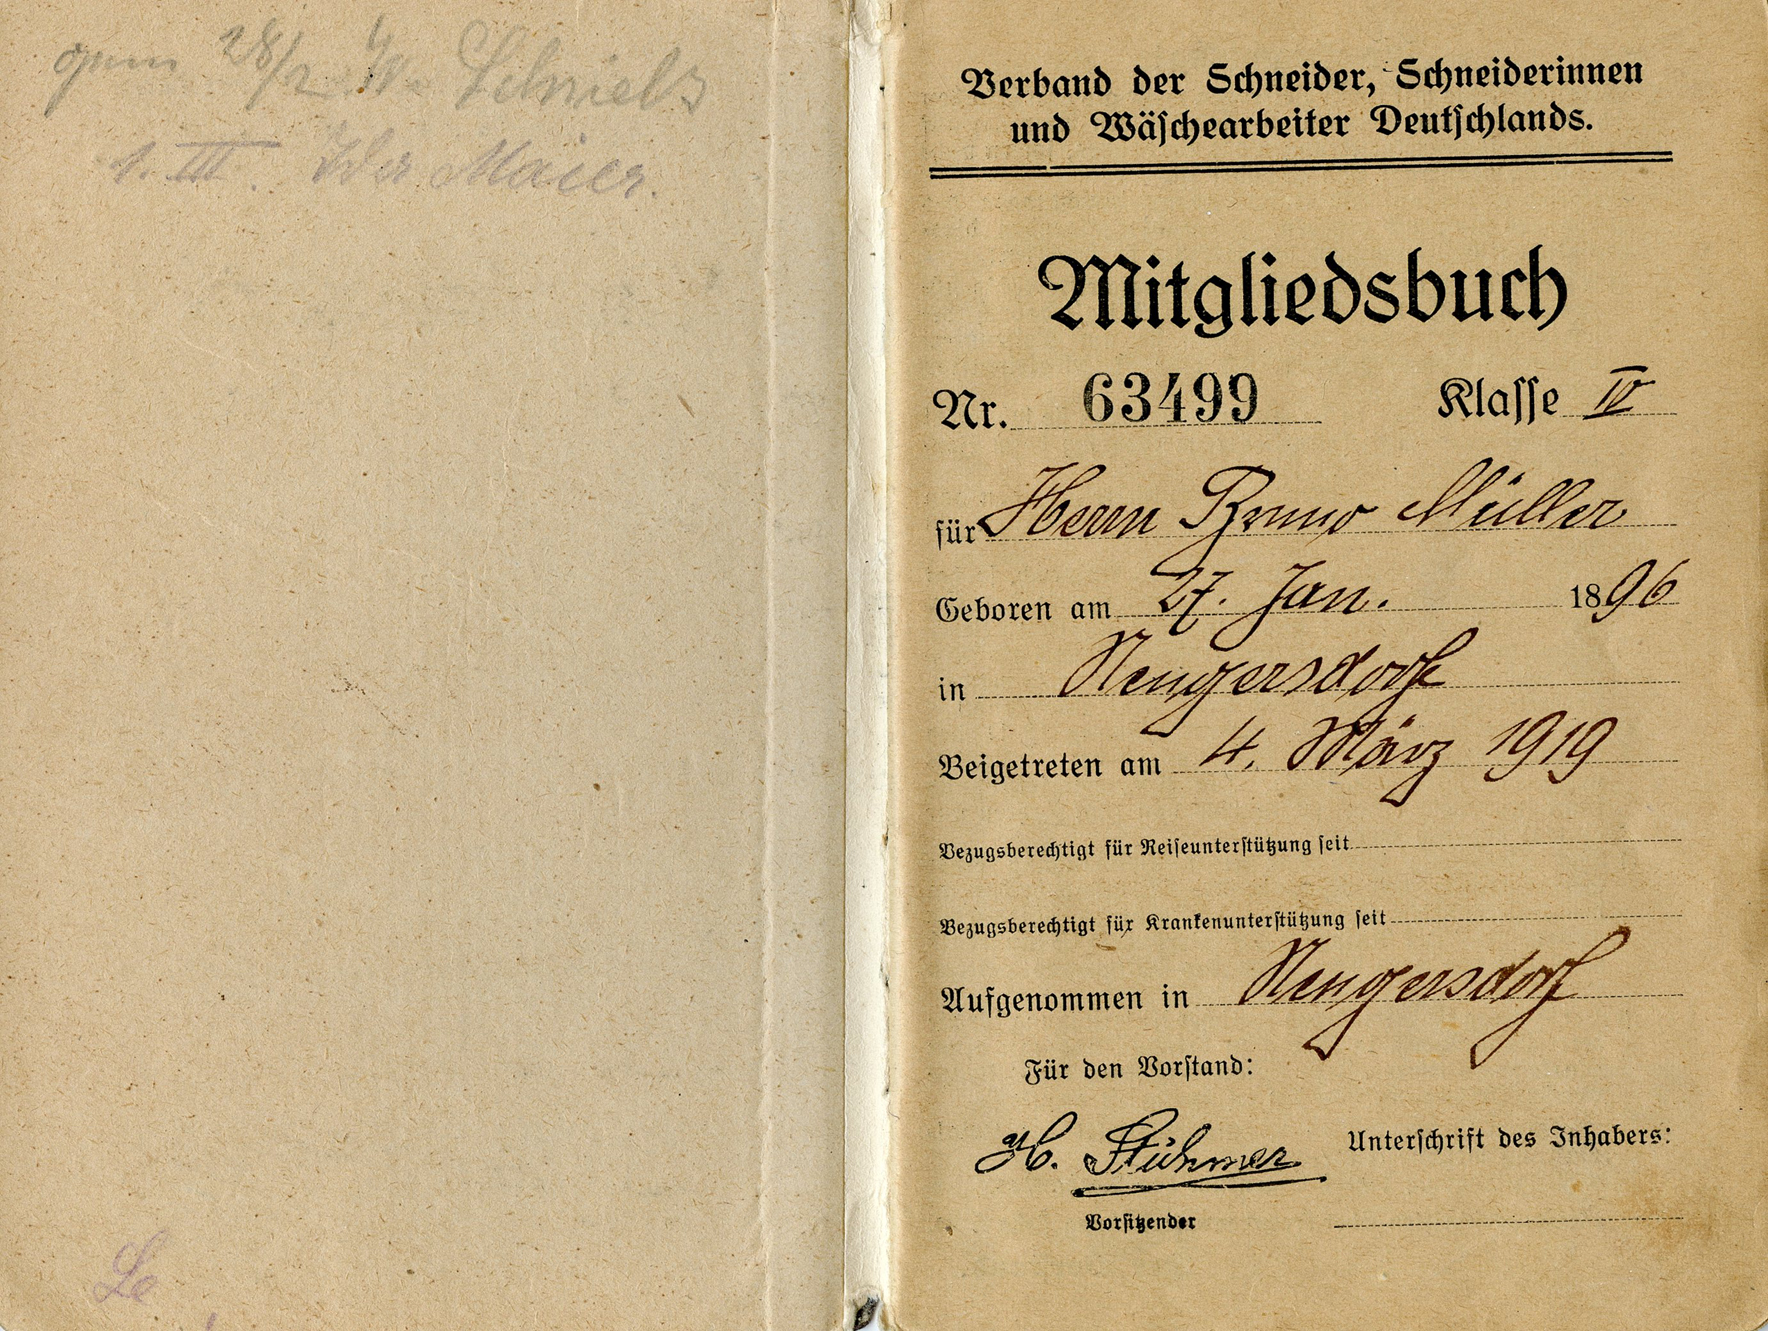 28/2 W. Schniebs
1. III. Ida Maier.
Le
Verband der Schneider, Schneiderinnen
und Wäschearbeiter Deutschlands.
Mitgliedsbuch
Nr. 63499 Klasse IV
für Herrn Bruno Müller
Geboren am 27. Jan. 1896
in Neugersdorf
Beigetreten am 4. März 1919
Bezugsberechtigt für Reiseunterstützung seit
Bezugsberechtigt für Krankenunterstützung seit
Aufgenommen in Neugersdorf
Für den Vorstand:
H. Stühmer
Unterschrift des Inhabers:
Vorsitzender